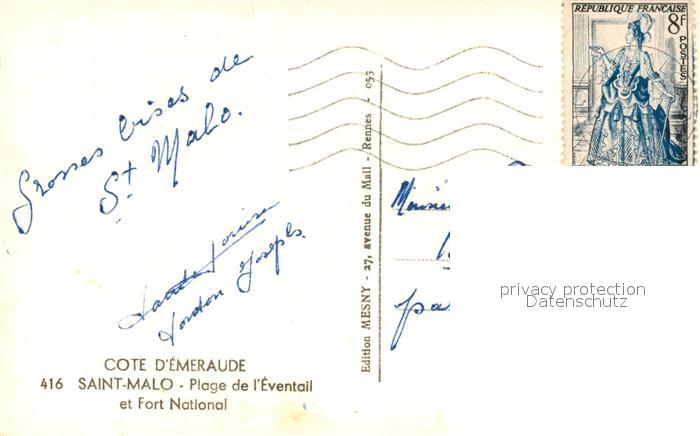 RÉPUBLIQUE FRANÇAISE
8f
POSTES
Grosses bises de
St Malo.
Tonton Joseph.
COTE D'ÉMERAUDE
416 SAINT-MALO - Plage de l'Éventail
et Fort National
Edition MESNY - 27, avenue du Mail - Rennes - 053
privacy protection
Datenschutz